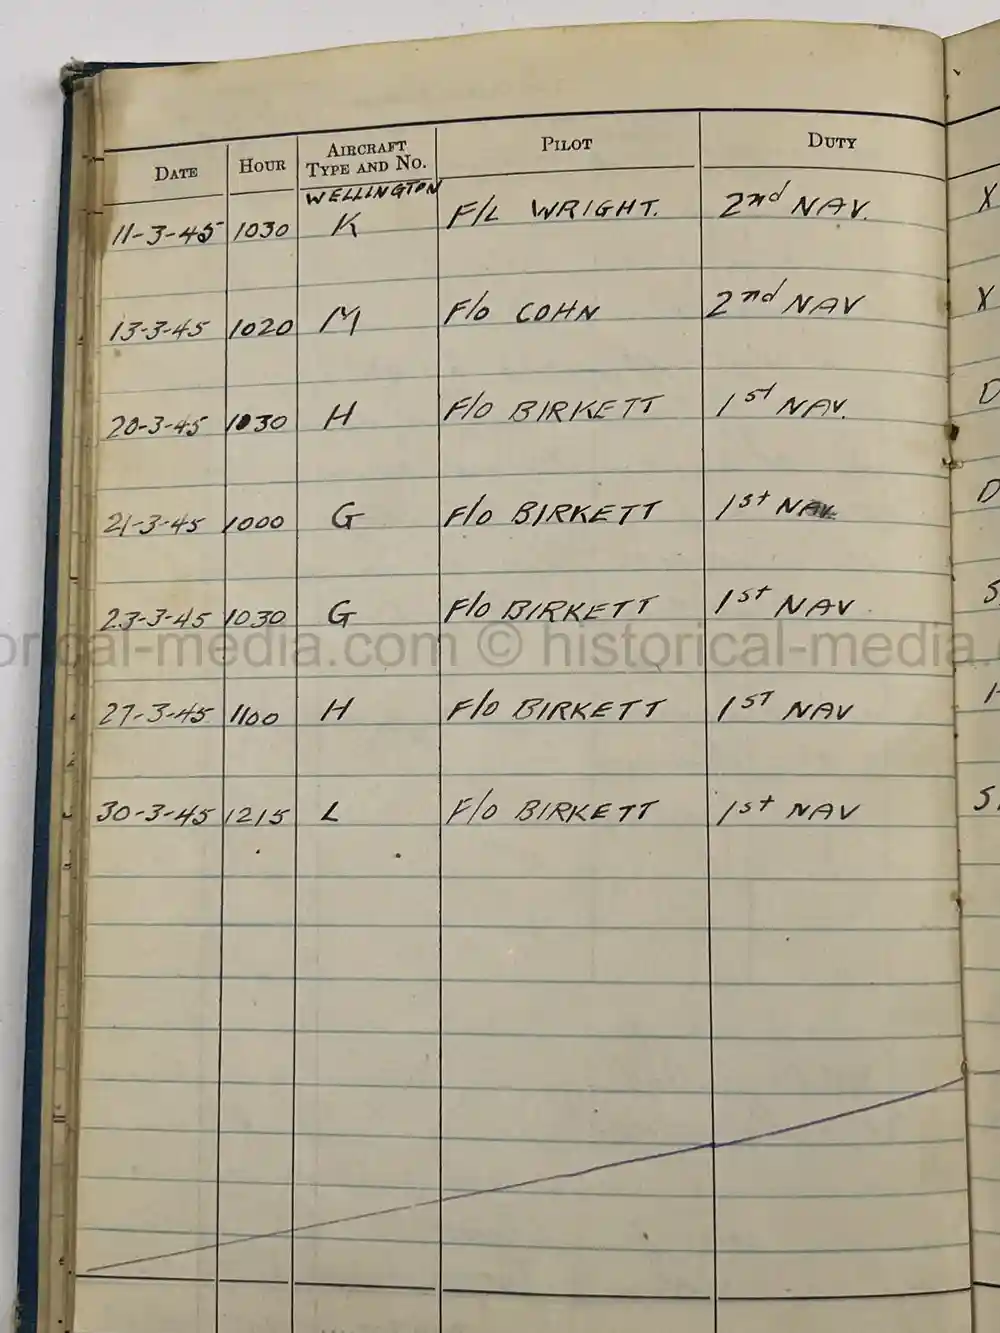 DATE HOUR AIRCRAFT TYPE AND NO. PILOT DUTY
WELLINGTON
11-3-45 1030 K F/L WRIGHT. 2nd NAV. X
13-3-45 1020 M F/O COHN 2nd NAV X
20-3-45 1030 H F/O BIRKETT 1st NAV. D
21-3-45 1000 G F/O BIRKETT 1st NAV. D
23-3-45 1030 G F/O BIRKETT 1st NAV. S
orical-media.com © historical-media.c
27-3-45 1100 H F/O BIRKETT 1ST NAV
30-3-45 1215 L F/O BIRKETT 1st NAV S.